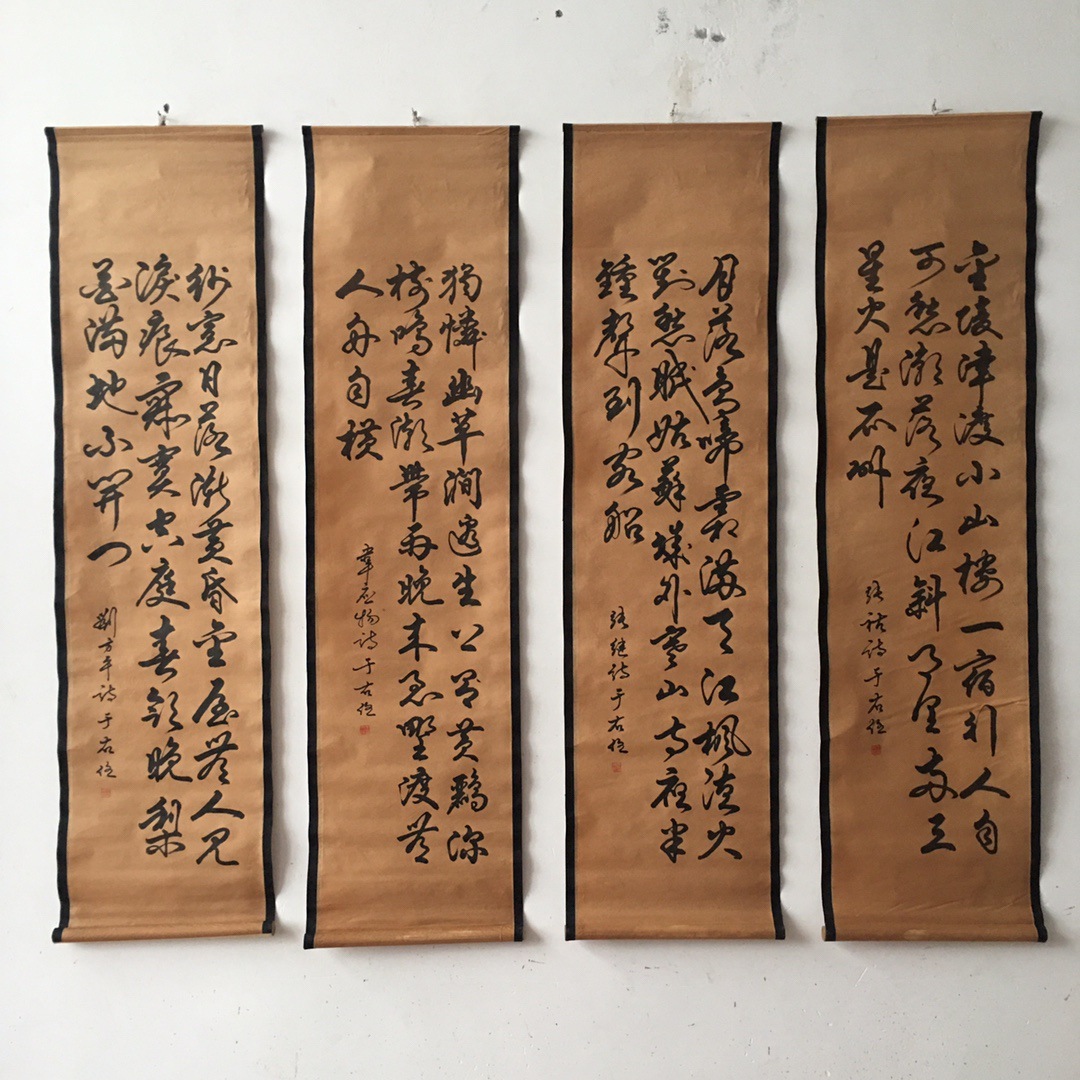 金陵津渡小山楼一宿引人自
可愁潮落夜江斜月里两三
星火是瓜州
張祜詩于右任
月落烏啼霜滿天江楓漁火
對愁眠姑蘇城外寒山寺夜半
鍾聲到客船
張継詩于右任
獨憐幽草澗邊生上有黄鸝深
樹鳴春潮帶雨晚来急野渡無
人舟自横
韋應物詩于右任
紗窗日落漸黄昏金屋無人見
淚痕寂寞空庭春欲晚梨
花滿地不開門
劉方平詩于右任